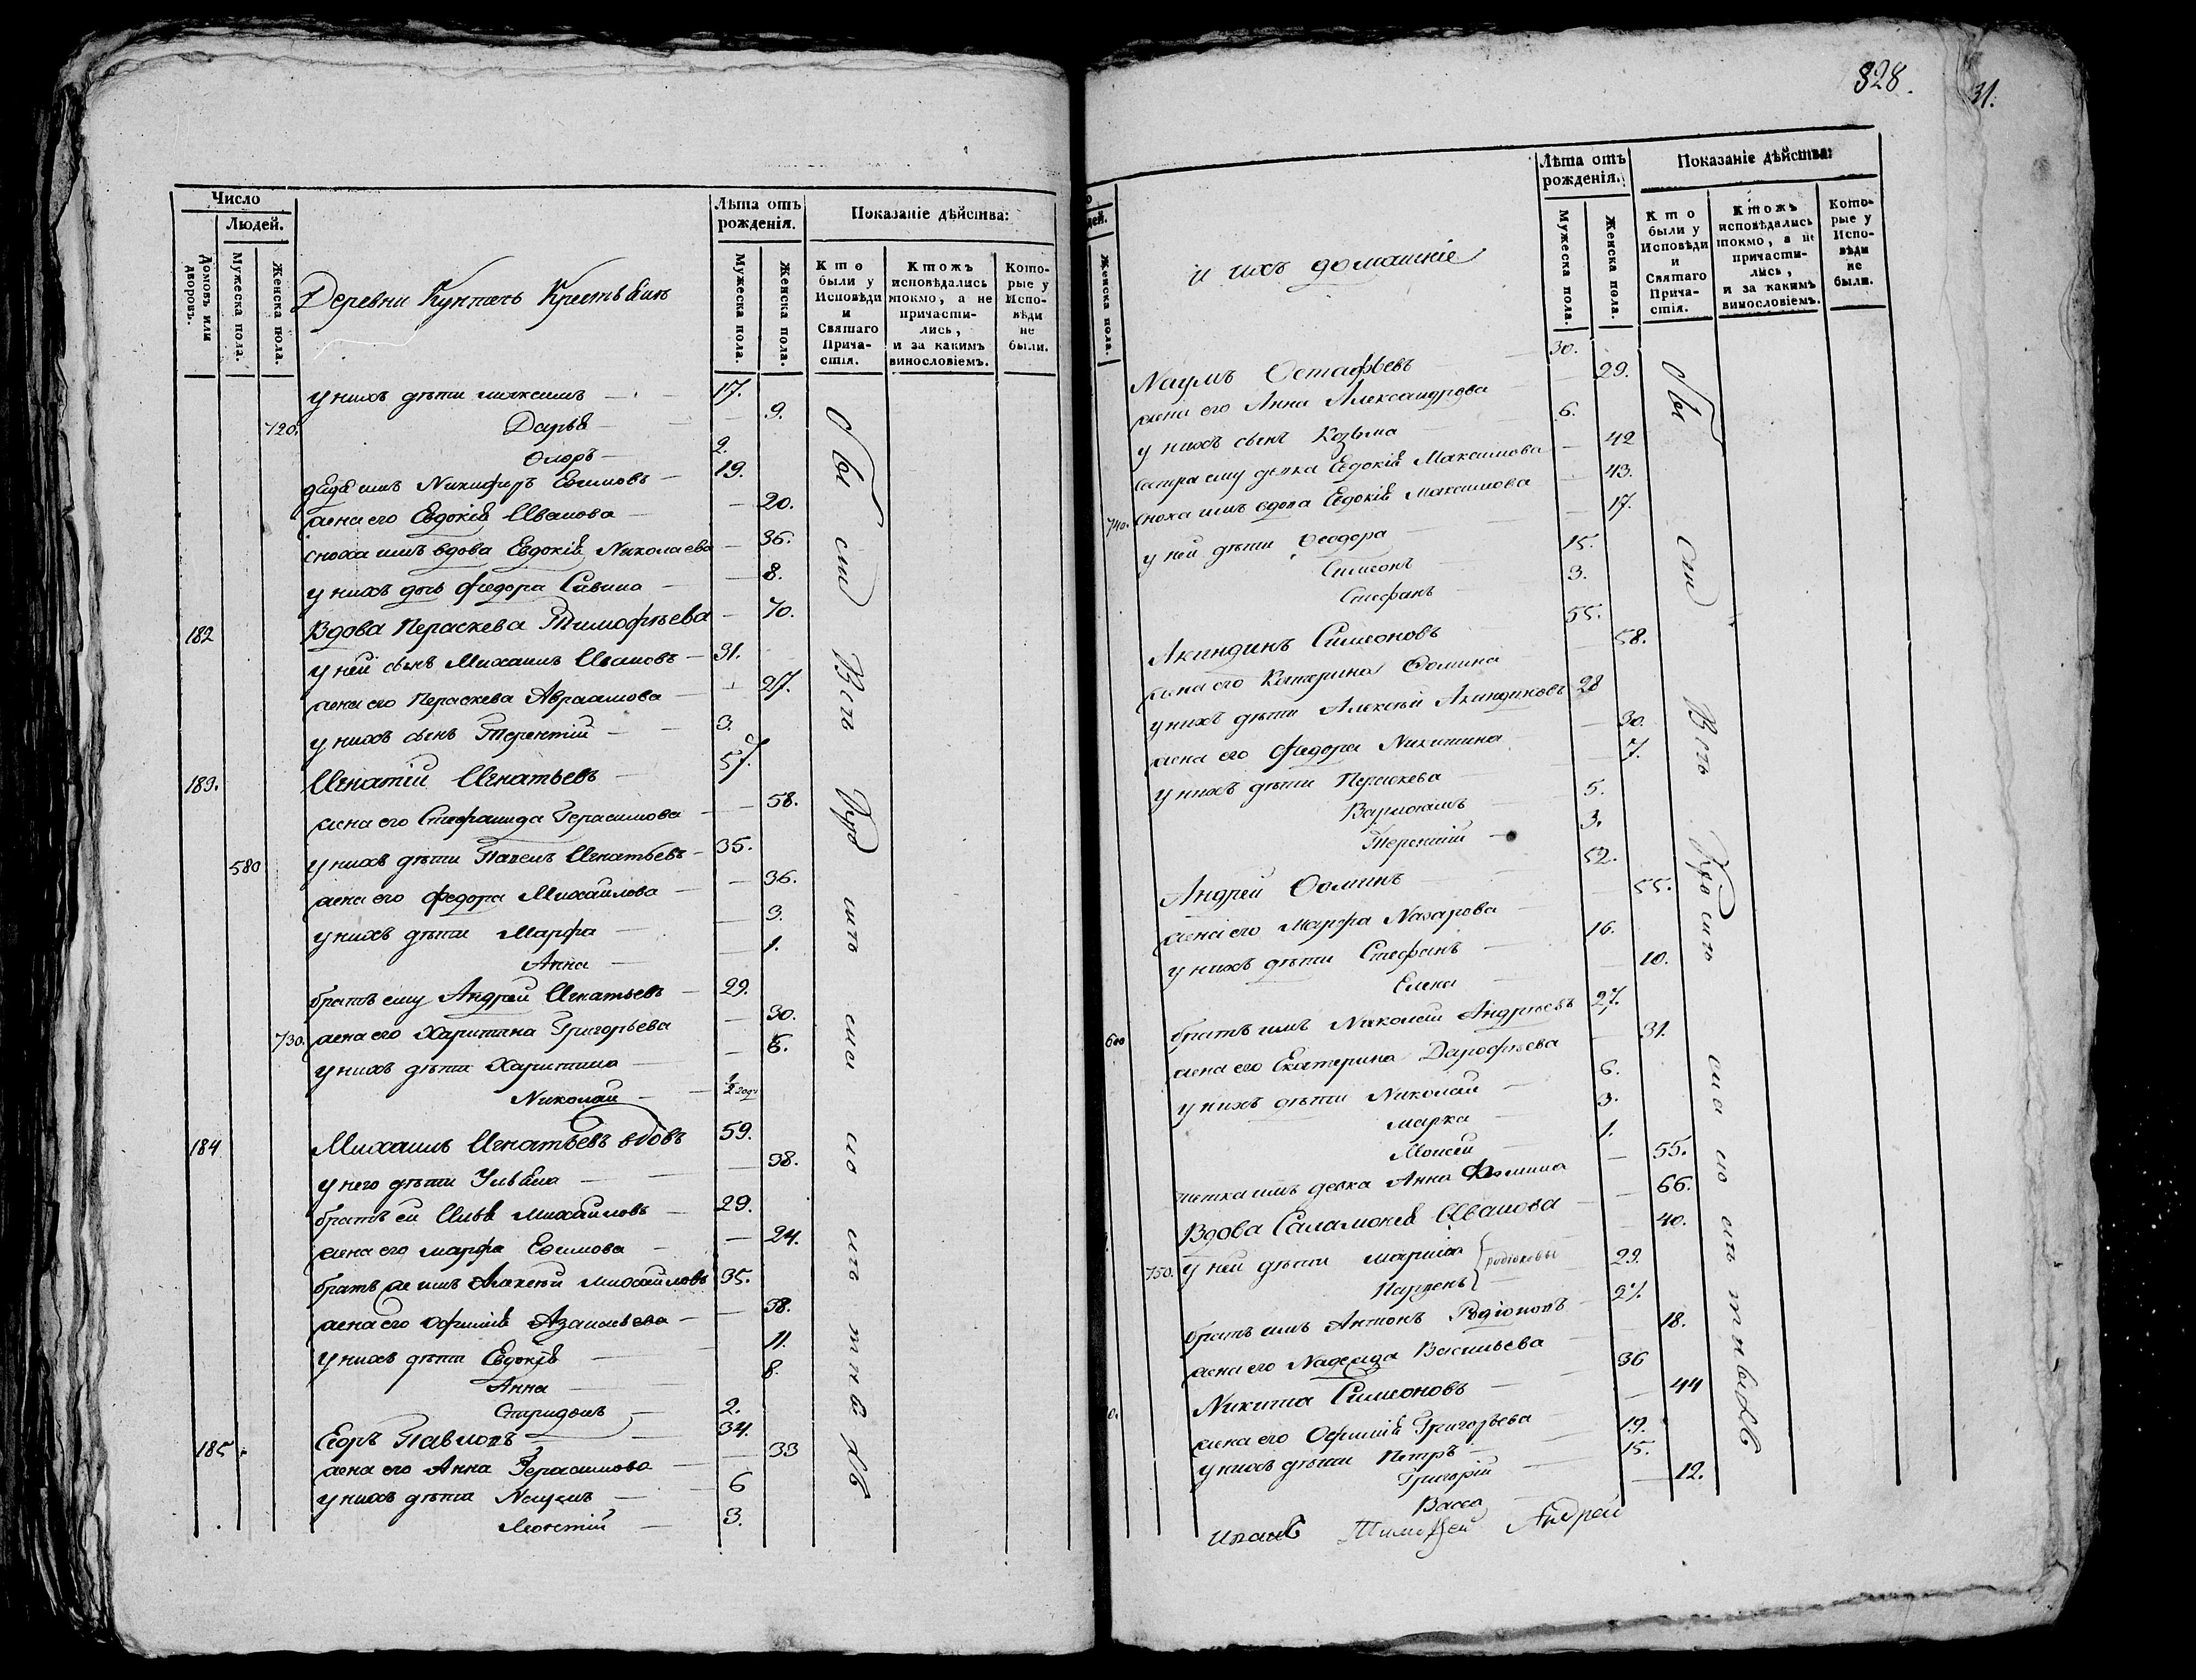 Число
Людей.
Домовъ или дворовъ.
Мужеска пола.
Женска пола.
Деревни Крестьянъ
Лѣта отъ рожденія.
Мужеска пола.
Женска пола.
Показаніе дѣйства:
Кто были у Исповѣди и Святаго Причастія.
Ктожъ исповѣдались токмо, а не причастились, и за какимъ винословіемъ.
Которые у Исповѣди не были.
у нихъ дѣти Максимъ 17.
720. Дарья 9.
2.
дядя имъ Никифоръ Ефимовъ 19.
жена его Евдокія Иванова 20.
сноха имъ вдова Евдокія Николаева 36.
у нихъ дочь Федора Савина 8.
182 Вдова Пераскева Тимофѣева 70.
у ней сынъ Михаилъ Ивановъ 31.
жена его Пераскева Авраамова 27.
у нихъ сынъ Терентій 3.
183. Игнатій Игнатьевъ 57.
жена его Стефанида Герасимова 58.
580 у нихъ дѣти Игнатьевъ 35.
жена его Федора Михайлова 36.
у нихъ дѣти Марфа 3.
Анна 1.
братъ ему Андрей Игнатьевъ 29.
730. жена его Харитина Григорьева 30.
у нихъ дѣти Харитина 6.
Николай ½ года
184 Михаилъ Игнатьевъ вдовъ 59.
у него дѣти Ульяна 38.
братъ ей Илья Михайловъ 29.
жена его Марфа Ефимова 24.
братъ же имъ Алексѣй Михайловъ 35.
жена его Офимія 38.
у нихъ дѣти Евдокія 11.
Анна 8.
Спиридонъ 2.
185. Егоръ Павловъ 34.
жена его Анна Герасимова 33
у нихъ дѣти Наумъ 6
3.
328.
31.
Женска пола.
и ихъ домашніе
Лѣта отъ рожденія.
Мужеска пола.
Женска пола.
Показаніе дѣйства:
Кто были у Исповѣди и Святаго Причастія.
Ктожъ исповѣдались токмо, а не причастились, и за какимъ винословіемъ.
Которые у Исповѣди не были.
Наумъ Остафьевъ 30.
жена его Анна Александрова 29.
у нихъ сынъ Козьма 6.
сестра ему девка Евдокія Максимова 42
740. сноха имъ вдова Евдокія Максимова 43.
у ней дѣти Ѳеодора 17.
Симеонъ 15.
Стефанъ 3.
Акиндинъ Симеоновъ 55.
жена его Катерина Фомина 58.
у нихъ дѣти Алексѣй Акиндиновъ 28
жена его Федора Никитина 30.
у нихъ дѣти Пераскева 7.
Варлаамъ 5.
Терентій 3.
Андрей Фоминъ 52.
жена его Марфа Назарова 55.
у нихъ дѣти Стефанъ 16.
Елена 10.
600 братъ имъ Николай Андрѣевъ 27.
жена его Екатерина Дарофѣева 31.
у нихъ дѣти Николай 6.
Марка 3.
Моисей 1.
тетка имъ девка Анна Фомина 55.
Вдова Саламонія Иванова 66.
750. у ней дѣти Марина 40.
29.
братъ имъ Антонъ Родіоновъ 27.
жена его Надежда Васильева 18.
Никита Симеоновъ 36
жена его Офимія Григорьева 44
у нихъ дѣти Петръ 19.
Григорій 15.
Васса 12.
Андрей